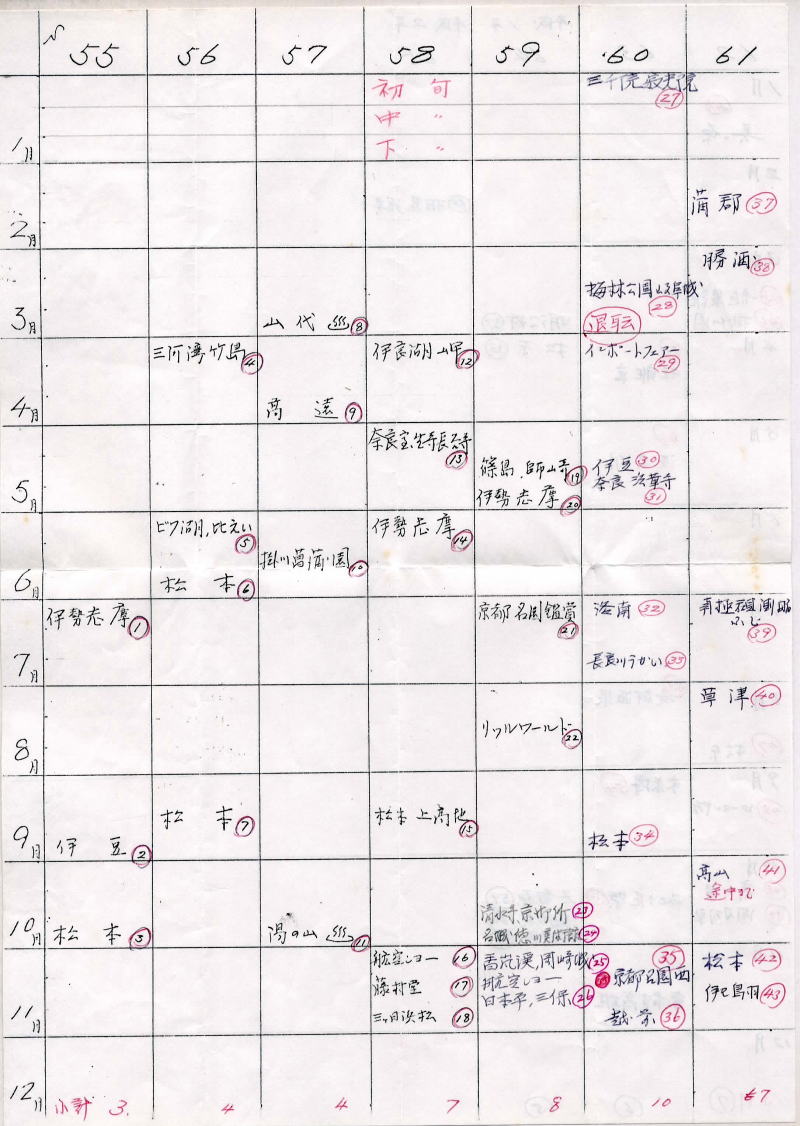 55 56 57 58 59 60 61
1月
初 旬
中 〃
下 〃
三千院寂光院
27
2月
蒲郡 37
3月
山代 8
梅林公園
28
退転
勝沼 38
4月
三河湾竹島 4
高遠 9
伊良湖岬 12
インポートフェアー
29
5月
奈良室生寺長谷寺
13
篠島、師山寺 19
伊勢志摩 20
伊豆 30
奈良法華寺
31
6月
ビワ湖、比えい
5
松本 6
掛川菖蒲園 10
伊勢志摩
14
7月
伊勢志摩 1
京都名園鑑賞
21
洛南 32
長良川うかい 33
南極観測船
ふじ
39
8月
リトルワールド
22
草津 40
9月
伊豆 2
松本 7
松本上高地
15
松本 34
10月
松本 3
湯の山 11
清水寺京都御所 23
名城、徳川美術館 24
高山 41
途中まで
11月
航空ショー 16
藤村堂 17
三ヶ日浜松 18
香嵐渓、岡崎城 25
航空ショー
日本平、三保 26
35
京都名園
越前 36
松本 42
伊セ鳥羽 43
12月
小計 3 4 4 7 8 10 7